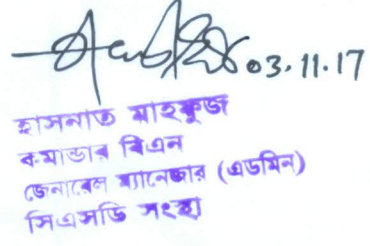 03.11.17
হাসনাত মাহফুজ
কমান্ডার বিএন
জেনারেল ম্যানেজার (এডমিন)
সিএসডি সংস্থা